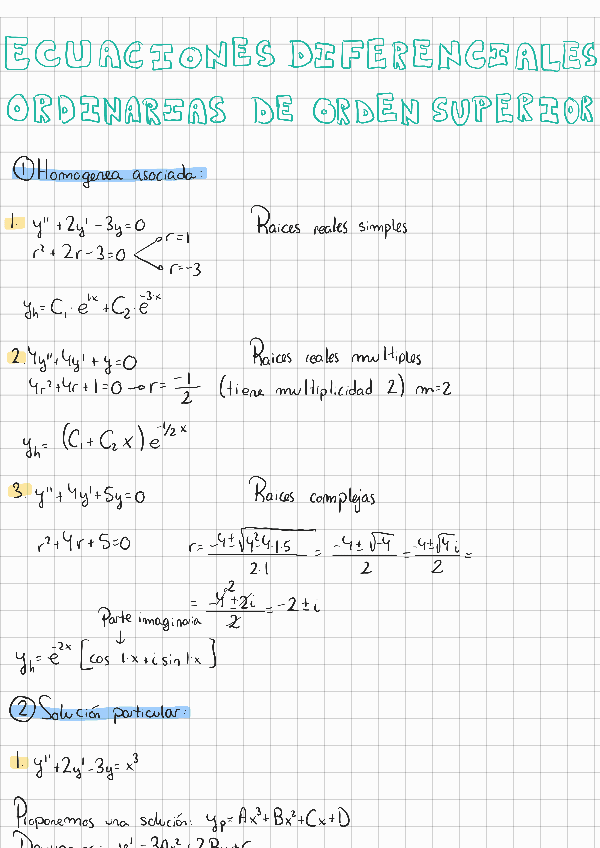 ECUACIONES DIFERENCIALES
ORDINARIAS DE ORDEN SUPERIOR
① Homogenea asociada:
1. y'' + 2y' - 3y = 0 Raices reales simples
r² + 2r - 3 = 0 r = 1
r = -3
y_h = C₁ · e^{1x} + C₂ · e^{-3·x}
2. 4y'' + 4y' + y = 0 Raices reales multiples
4r² + 4r + 1 = 0 → r = -1/2 (tiene multiplicidad 2) m = 2
y_h = (C₁ + C₂ x) e^{-1/2 x}
3. y'' + 4y' + 5y = 0 Raices complejas
r² + 4r + 5 = 0 r = (-4 ± √(4² - 4·1·5))/(2·1) = (-4 ± √-4)/2 = (-4 ± √4 i)/2 =
= (-4² ± 2i)/2 = -2 ± i
Parte imaginaria
↓
y_h = e^{-2x} [cos 1·x + i sin 1·x]
② Solución particular:
1. y'' + 2y' - 3y = x³
Proponemos una solución: y_p = Ax³ + Bx² + Cx + D